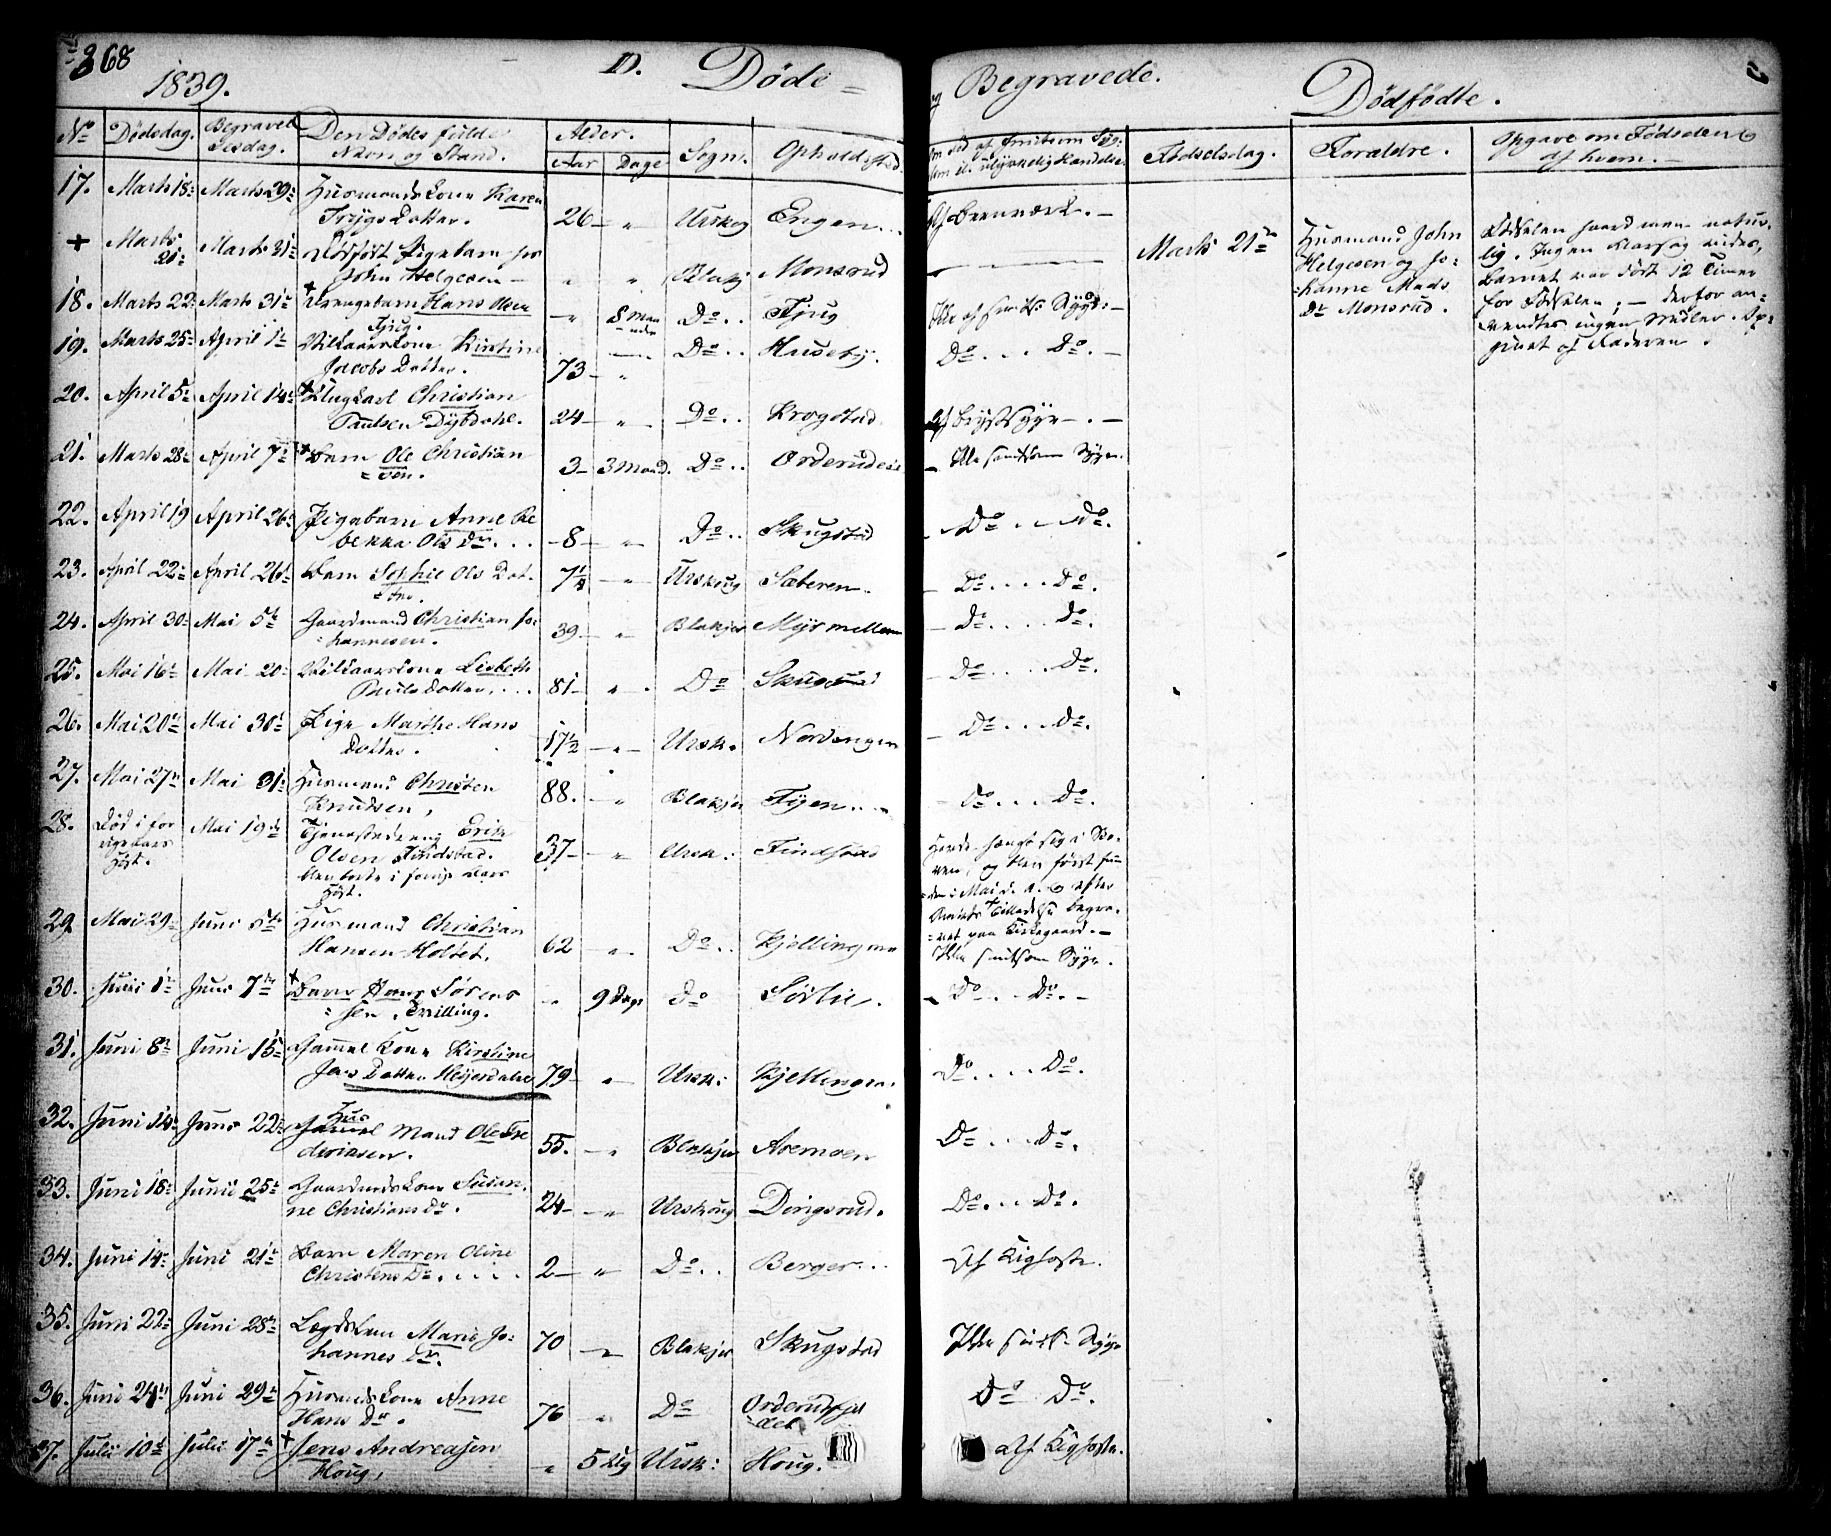 368
1839.
D. Døde =
og Begravede.
Dødfødte.
No Dødsdag. Begravelsesdag. Den Dødes fulde Navn og Stand. Alder. Aar Dage Sogn. Opholdssted.
Fødselsdag. Forældre. Opgave om Fødselen og af hvem. –
17. Marts 18 Marts 29 Huusmandskone Karen
Trygs Datter. 26 – " Urskog Engen
Marts 21 Marts 31 Dødfødt Pigebarn for
John Helgesen – " " Blakj Monsrud
Marts 21 Huusmand John
Helgesen og Jo-
hanne Mads
Dr Monsrud.
Fødselen foregik
naturlig. Ingen
barnet var dødt 12 Timer
før Fødselen; – derfor an-
vendtes ingen Midler. Op-
givet af Faderen.
18. Marts 22 Marts 31 Drengebarn Hans Olsen
Fjug. – " 8 Maaneder Do.. Fjug
19. Marts 25 April 1 Vilkaarskone Kirstine
Jacobs Datter. 73 – " Do.. Huseby. Do... Do. –
20. April 5 April 14 Ungkarl Christian
Paulsen Dybdahl. 24 – " Do.. Krogstad Af Brystsyge –
21. Marts 28 April 7 Barn Ole Christian
= sen. 3 – 3 Maand. Do.. Orderud – Ikke smitsom Syge.
22. April 19 April 26 Pigebarn Anne Re
bekka Ols Dr... – 8 – " Do.. Skugstad – Do... Do.
23. April 22 April 26 Barn Sophie Ols Dat-
ter. 7½ – " Urskoug Sæteren. – Do.... Do.
24. April 30 Mai 5 Gaardmand Christian Jo-
hannesen. 39 – " Blakjer Myrmellem – Do.... Do.
25. Mai 16 Mai 20 Vilkaarskone Lisbeth
Pauls Datter,... 81 – " Do Skugstad – Do.... Do.
26. Mai 20 Mai 30 Pige Marthe Hans
Datter. 17½ – " Ursk. – Do... Do.
27. Mai 27 Mai 31 Huusmand Christen
Knudsen, 88. – " Blakjer Tyen... – Do... Do.
28. Død i for
rige Aars
Høst. Mai 19 Tjenestedreng Erik
Olsen Findstad.
blev borte i forrige Aars
Høst. 37 – " Ursk: Findstad
Havde hængt sig i Sko-
ven, og blev først fun
den i Mai d. A. og efter
Amtets Tilladelse begra-
vet paa Kirkegaard. –
29 Mai 29 Juni 5 Huusmand Christian
Hansen Holtet. 62 – " Do.. Kjellingmo Ikke smitsom Syge.
30. Juni 1 Juni 7 Barn Hans Sørens
= sen. Tvilling. " 9 Dage Do Sørlie. – Do... Do. –
31. Juni 8 Juni 15 Gammel Kone Kirstine
Jens Datter Heyerdalen 79 – " Ursk: Kjellingm. Do.... Do.
32. Juni 14 Juni 22 Huus
Mand Ole Fre
deriksen. 55. – " Blakjer Aremoen Do... Do.
33. Juni 18 Junii 25 Gaardmandskone Susan-
ne Christians Dr. 24 – " Urskoug Dingsrud. Do... Do.
34. Juni 14 Juni 21 Barn Maren Oline
Christens Dr.... 2 – " Do.. Berger... Af Kighoste.
35. Juni 22 Juni 28 Lægdslem Marie Jo-
hannes Dr. 70 – " Blakjer Skugstad Ikke smits. Syge
36. Juni 24 Juni 29 Huusmandskone Anne
Hans Dr. 76 " Do Orderudfjel
det Do Do.
37. Julii 10 Julii 17 Jens Andreasen
Houg, " 5 Urs: Houg. Af Kighoste.